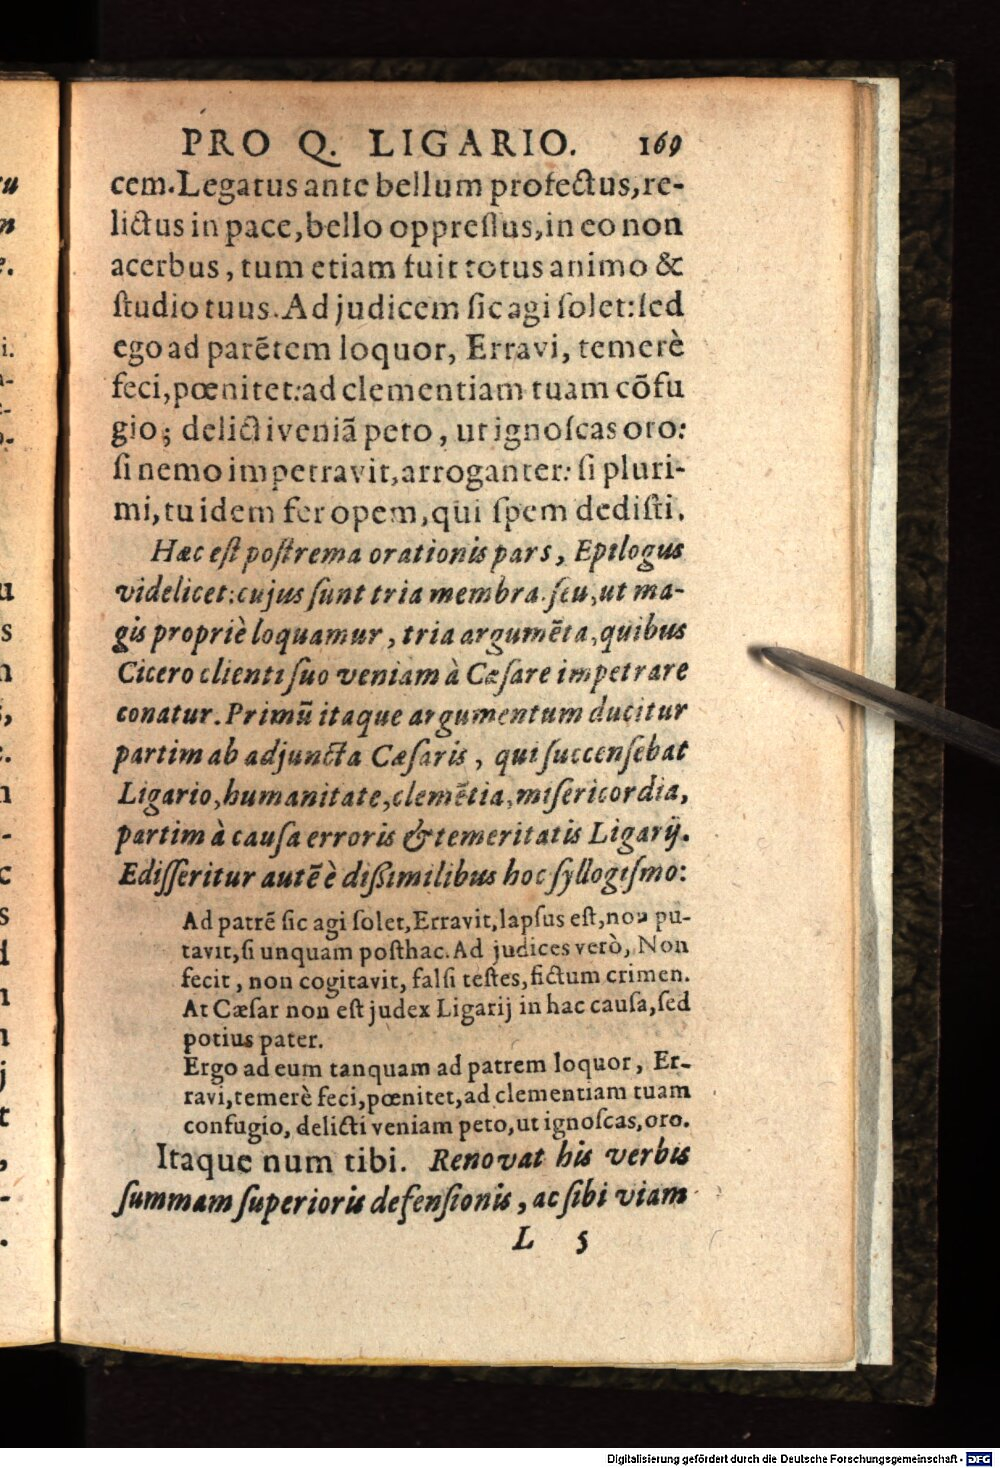 PRO Q. LIGARIO. 169
cem. Legatus ante bellum profectus, re-
lictus in pace, bello oppreſſus, in eo non
acerbus, tum etiam fuit totus animo &
ſtudio tuus. Ad judicem ſic agi ſolet: ſed
ego ad parẽtem loquor, Erravi, temerè
feci, pœnitet: ad clementiam tuam cõfu
gio; delicti veniã peto, ut ignoſcas oro:
ſi nemo impetravit, arroganter: ſi pluri-
mi, tu idem fer opem, qui ſpem dediſti.
Hæc eſt poſtrema orationis pars, Epilogus
videlicet: cujus ſunt tria membra ſeu, ut ma-
gis propriè loquamur, tria argumẽta, quibus
Cicero clienti ſuo veniam à Cæſare impetrare
conatur. Primũ itaque argumentum ducitur
partim ab adjuncta Cæſaris, qui ſuccenſebat
Ligario, humanitate, clemẽtia, miſericordia,
partim à cauſa erroris & temeritatis Ligarij.
Ediſſeritur autẽ è dißimilibus hoc ſyllogiſmo:
Ad patrẽ ſic agi ſolet, Erravit, lapſus eſt, non pu-
tavit, ſi unquam poſthac. Ad judices verò, Non
fecit, non cogitavit, falſi teſtes, fictum crimen.
At Cæſar non eſt judex Ligarij in hac cauſa, ſed
potius pater.
Ergo ad eum tanquam ad patrem loquor, Er-
ravi, temerè feci, pœnitet, ad clementiam tuam
confugio, delicti veniam peto, ut ignoſcas, oro.
Itaque num tibi. Renovat his verbis
ſummam ſuperioris defenſionis, ac ſibi viam
L 5
Digitalisierung gefördert durch die Deutsche Forschungsgemeinschaft - DFG